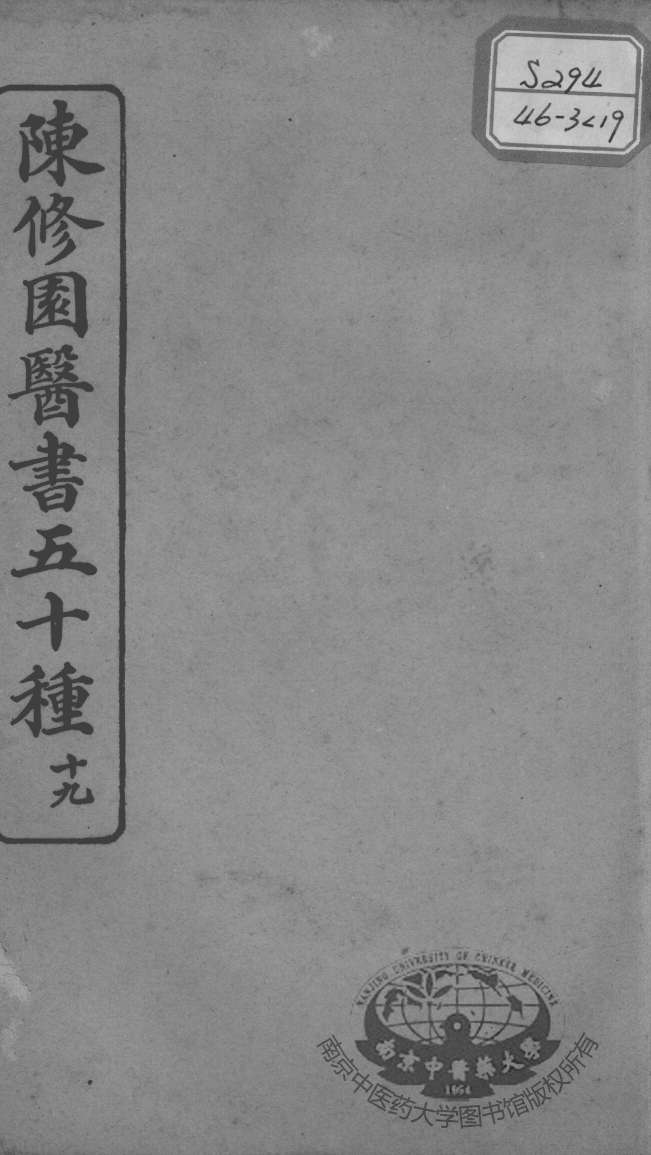 S294
46-3<19
陳修園醫書五十種
十九
NANJING UNIVERSITY OF CHINESE MEDICINE
南京中醫藥大學
1954
南京中医药大学图书馆版权所有